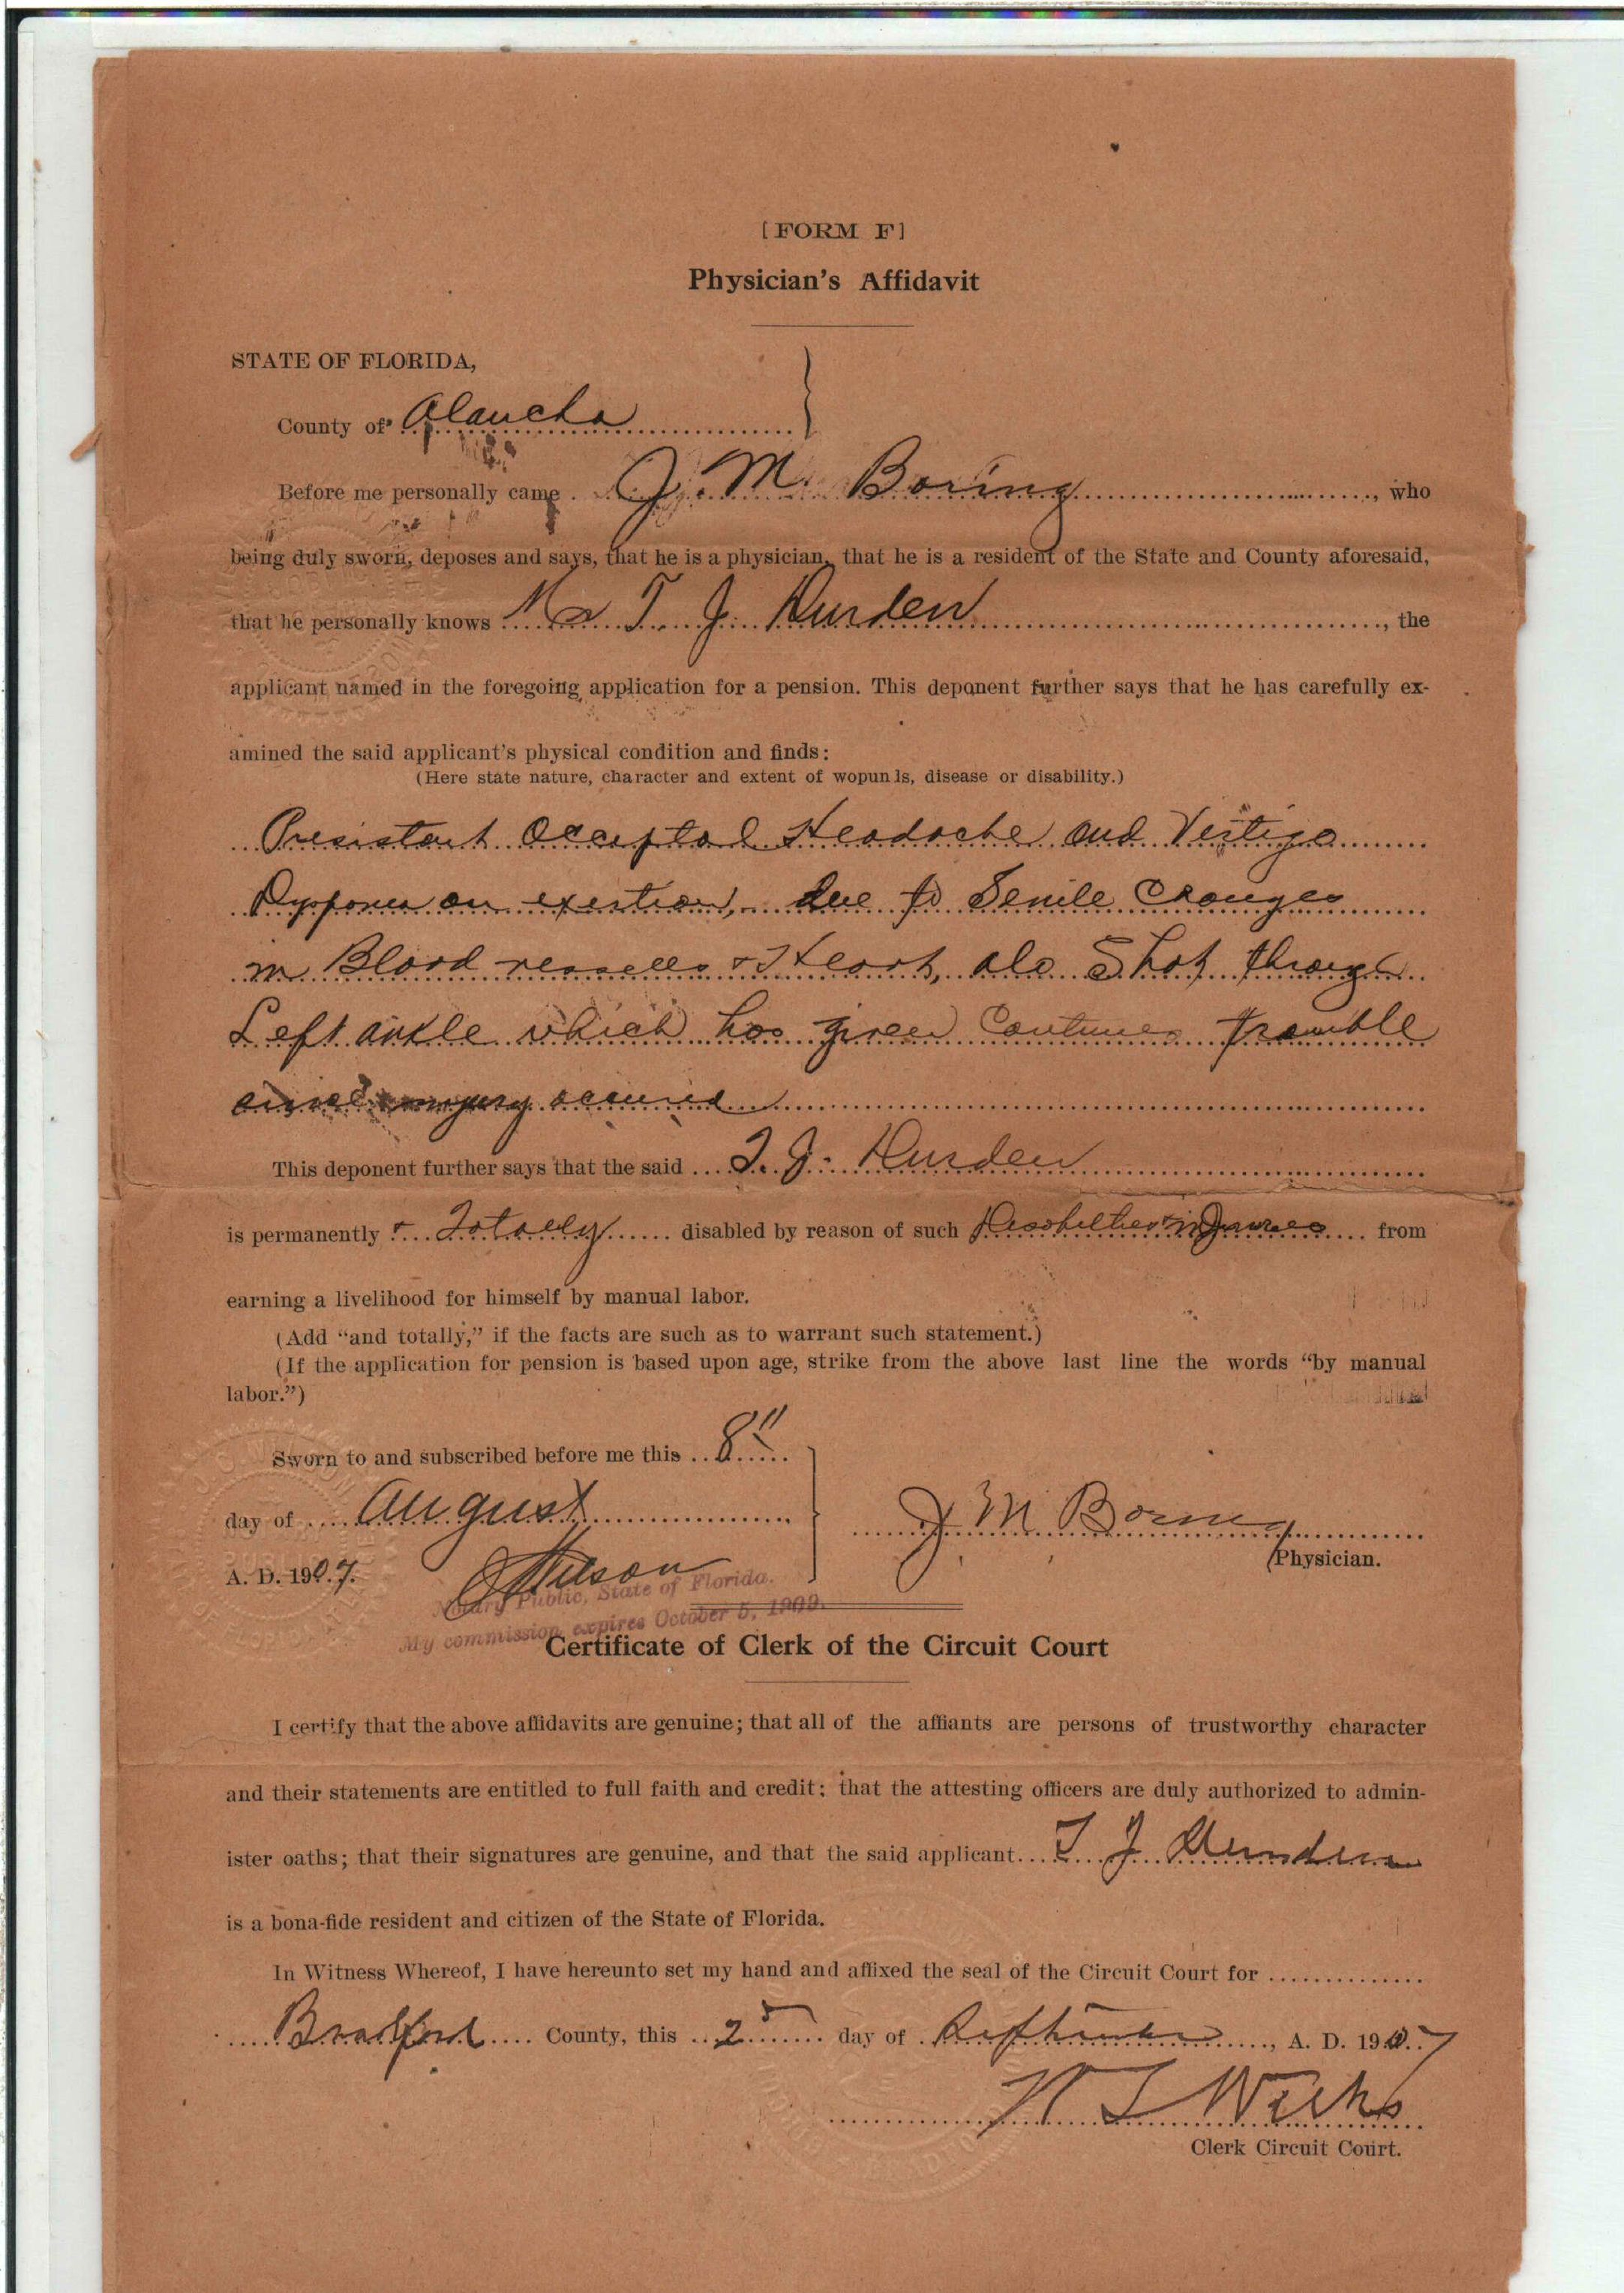 [FORM F]
Physician's Affidavit
STATE OF FLORIDA,
County of Alaucha
Before me personally came J. M. Boring, who
being duly sworn, deposes and says, that he is a physician, that he is a resident of the State and County aforesaid,
that he personally knows Mr T. J. Hurden, the
applicant named in the foregoing application for a pension. This deponent further says that he has carefully ex-
amined the said applicant's physical condition and finds:
(Here state nature, character and extent of wopunls, disease or disability.)
Presistant Occeptal Headache and Vertigo
Dysponea on exertion, due to Senile Changes
in Blood vessells & Heart, also Shot through
Left ankle which has given Continues trouble
since injury occured
This deponent further says that the said T. J. Hurden
is permanently & Totally disabled by reason of such from
earning a livelihood for himself by manual labor.
(Add "and totally," if the facts are such as to warrant such statement.)
(If the application for pension is based upon age, strike from the above last line the words "by manual
labor.")
Sworn to and subscribed before me this 8"
day of August
A. D. 1907.
J M Boring
Physician.
Notary Public, State of Florida.
My commission expires October 5, 1909.
Certificate of Clerk of the Circuit Court
I certify that the above affidavits are genuine; that all of the affiants are persons of trustworthy character
and their statements are entitled to full faith and credit; that the attesting officers are duly authorized to admin-
ister oaths; that their signatures are genuine, and that the said applicant T J
is a bona-fide resident and citizen of the State of Florida.
In Witness Whereof, I have hereunto set my hand and affixed the seal of the Circuit Court for
Bradford County, this 2 day of September, A. D. 1907
Clerk Circuit Court.